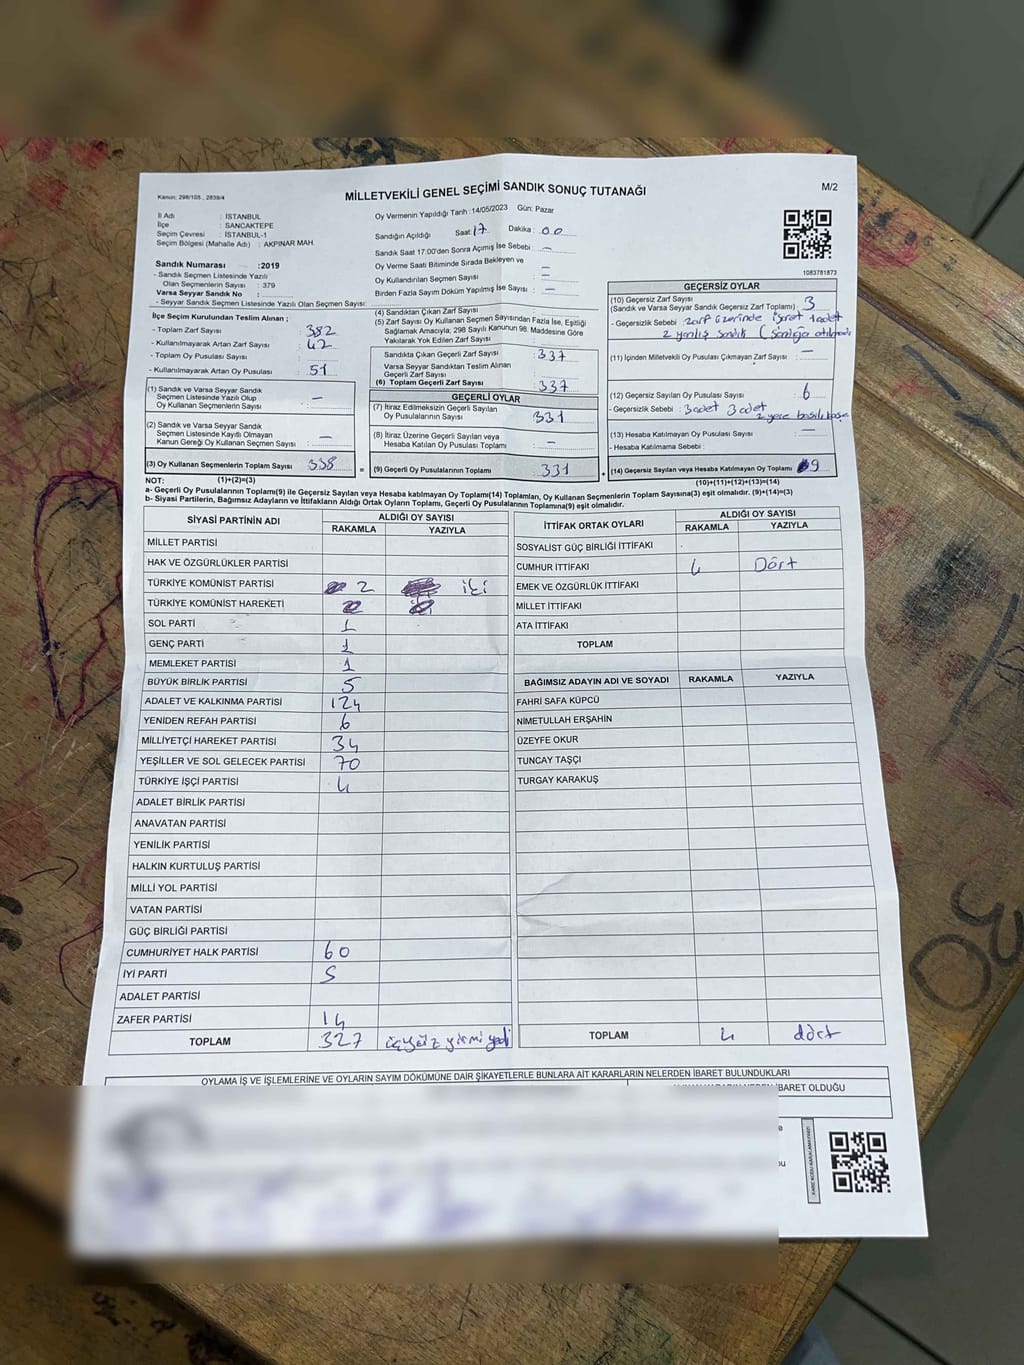 Kanun: 298/105 , 2839/4
MİLLETVEKİLİ GENEL SEÇİMİ SANDIK SONUÇ TUTANAĞI
M/2
İl Adı : İSTANBUL
İlçe : SANCAKTEPE
Seçim Çevresi : İSTANBUL-1
Seçim Bölgesi (Mahalle Adı) : AKPINAR MAH.
Sandık Numarası : 2019
- Sandık Seçmen Listesinde Yazılı
Olan Seçmenlerin Sayısı : 379
Varsa Seyyar Sandık No :
- Seyyar Sandık Seçmen Listesinde Yazılı Olan Seçmen Sayısı:
İlçe Seçim Kurulundan Teslim Alınan ;
- Toplam Zarf Sayısı : 382
- Kullanılmayarak Artan Zarf Sayısı : 42
- Toplam Oy Pusulası Sayısı :
- Kullanılmayarak Artan Oy Pusulası : 51
(1) Sandık ve Varsa Seyyar Sandık
Seçmen Listesinde Yazılı Olup
Oy Kullanan Seçmenlerin Sayısı : –
(2) Sandık ve Varsa Seyyar Sandık
Seçmen Listesinde Kayıtlı Olmayan
Kanun Gereği Oy Kullanan Seçmen Sayısı : –
(3) Oy Kullanan Seçmenlerin Toplam Sayısı : 338
(1)+(2)=(3)
Oy Vermenin Yapıldığı Tarih : 14/05/2023 Gün: Pazar
Sandığın Açıldığı Saat : 17 Dakika : 00
Sandık Saat 17.00'den Sonra Açılmış İse Sebebi : –
Oy Verme Saati Bitiminde Sırada Bekleyen ve
Oy Kullandırılan Seçmen Sayısı : –
Birden Fazla Sayım Döküm Yapılmış İse Sayısı : –
(4) Sandıktan Çıkan Zarf Sayısı :
(5) Zarf Sayısı Oy Kullanan Seçmen Sayısından Fazla İse, Eşitliği
Sağlamak Amacıyla; 298 Sayılı Kanunun 98. Maddesine Göre
Yakılarak Yok Edilen Zarf Sayısı :
Sandıkta Çıkan Geçerli Zarf Sayısı : 337
Varsa Seyyar Sandıktan Teslim Alınan
Geçerli Zarf Sayısı :
(6) Toplam Geçerli Zarf Sayısı : 337
GEÇERLİ OYLAR
(7) İtiraz Edilmeksizin Geçerli Sayılan
Oy Pusulalarının Sayısı : 331
(8) İtiraz Üzerine Geçerli Sayılan veya
Hesaba Katılan Oy Pusulası Toplamı : –
= (9) Geçerli Oy Pusulalarının Toplamı : 331
1083781873
GEÇERSİZ OYLAR
(10) Geçersiz Zarf Sayısı
(Sandık ve Varsa Seyyar Sandık Geçersiz Zarf Toplamı) : 3
- Geçersizlik Sebebi : zarf üzerinde işaret 1 adet
2 yanlış sandık (
(11) İçinden Milletvekili Oy Pusulası Çıkmayan Zarf Sayısı : –
(12) Geçersiz Sayılan Oy Pusulası Sayısı : 6
- Geçersizlik Sebebi : 3 adet 3 adet
2 yere basılı
(13) Hesaba Katılmayan Oy Pusulası Sayısı : –
- Hesaba Katılmama Sebebi :
+ (14) Geçersiz Sayılan veya Hesaba Katılmayan Oy Toplamı : 9
(10)+(11)+(12)+(13)=(14)
NOT:
a- Geçerli Oy Pusulalarının Toplamı(9) ile Geçersiz Sayılan veya Hesaba katılmayan Oy Toplamı(14) Toplamları, Oy Kullanan Seçmenlerin Toplam Sayısına(3) eşit olmalıdır. (9)+(14)=(3)
b- Siyasi Partilerin, Bağımsız Adayların ve İttifakların Aldığı Ortak Oyların Toplamı, Geçerli Oy Pusulalarının Toplamına(9) eşit olmalıdır.
SİYASİ PARTİNİN ADI ALDIĞI OY SAYISI
RAKAMLA YAZIYLA
MİLLET PARTİSİ
HAK VE ÖZGÜRLÜKLER PARTİSİ
TÜRKİYE KOMÜNİST PARTİSİ 2 iki
TÜRKİYE KOMÜNİST HAREKETİ
SOL PARTİ 1
GENÇ PARTİ 1
MEMLEKET PARTİSİ 1
BÜYÜK BİRLİK PARTİSİ 5
ADALET VE KALKINMA PARTİSİ 124
YENİDEN REFAH PARTİSİ 6
MİLLİYETÇİ HAREKET PARTİSİ 34
YEŞİLLER VE SOL GELECEK PARTİSİ 70
TÜRKİYE İŞÇİ PARTİSİ 4
ADALET BİRLİK PARTİSİ
ANAVATAN PARTİSİ
YENİLİK PARTİSİ
HALKIN KURTULUŞ PARTİSİ
MİLLİ YOL PARTİSİ
VATAN PARTİSİ
GÜÇ BİRLİĞİ PARTİSİ
CUMHURİYET HALK PARTİSİ 60
İYİ PARTİ 5
ADALET PARTİSİ
ZAFER PARTİSİ 14
TOPLAM 327 üçyüz yirmi yedi
İTTİFAK ORTAK OYLARI ALDIĞI OY SAYISI
RAKAMLA YAZIYLA
SOSYALİST GÜÇ BİRLİĞİ İTTİFAKI
CUMHUR İTTİFAKI 4 Dört
EMEK VE ÖZGÜRLÜK İTTİFAKI
MİLLET İTTİFAKI
ATA İTTİFAKI
TOPLAM
BAĞIMSIZ ADAYIN ADI VE SOYADI RAKAMLA YAZIYLA
FAHRİ SAFA KÜPCÜ
NİMETULLAH ERŞAHİN
ÜZEYFE OKUR
TUNCAY TAŞÇI
TURGAY KARAKUŞ
TOPLAM 4 dört
OYLAMA İŞ VE İŞLEMLERİNE VE OYLARIN SAYIM DÖKÜMÜNE DAİR ŞİKAYETLERLE BUNLARA AİT KARARLARIN NELERDEN İBARET BULUNDUKLARI
İBARET OLDUĞU